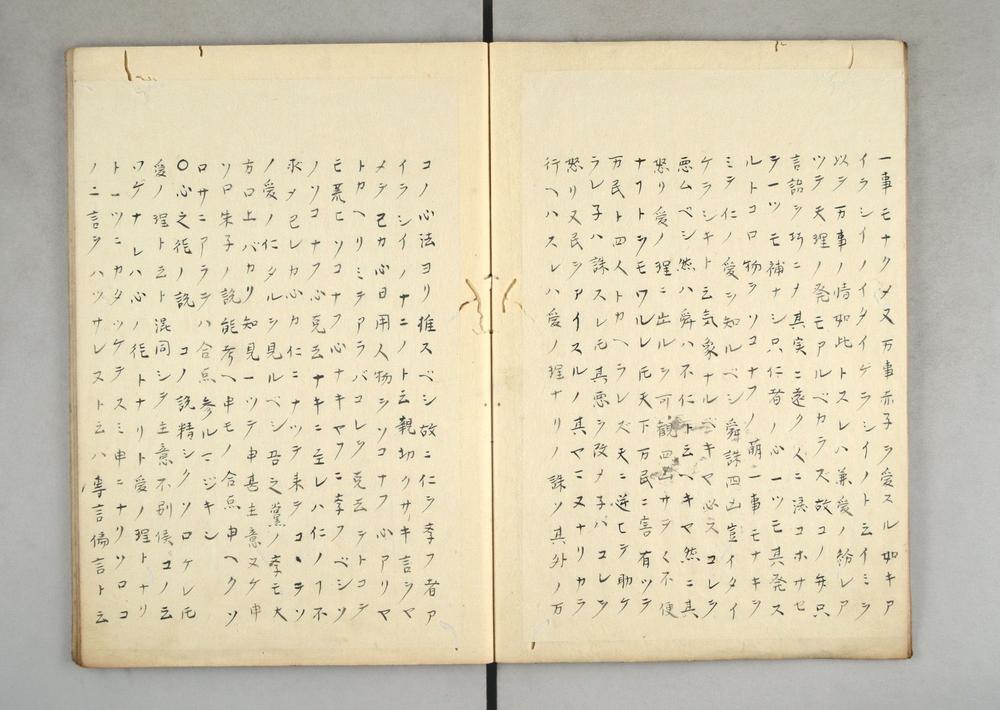 一事モナクメ又万事赤子ヲ愛スル如キア
イラシイノイタイゲラシイノト云イミヲ
以テ万事ノ情如此トスレハ兼愛ノ紛レア
ツテ天理ノ発モアルベカラズ故コノ矣只
言詔ヲ巧ニメ其実ニ遠ク人ニ湯コホサセ
テ一ツモ補ナシ只仁者ノ心一ツモ其発ス
ルトコロ物ヲソコナフノ萌一事モナキヲ
ミテ仁ノ愛ヲ知ルベシ舜誅四凶豈イタイ
ケラシキト云気象ナルベキヤ必スコレヲ
悪ムベシ然ハ舜ハ不仁ト云ヘキヤ然ニ其
怒リ愛ノ理ニ出ルヲ可観四凶サテく不便
ナフトヲモワルレ𪜈天下万民ニ害有ツテ
万民ト四人トカヘラレズ天ニ逆ヒテ助ケ
ラレ子ハ誅スレ𪜈其悪ヲ改メ子バコレヲ
怒リ又民ヲアイスルノ其マヽヌナリカラ
行ヘハスレハ愛ノ理ナリノ誅ソ其外ノ万
コノ心法ヨリ推スベシ故ニ仁ヲ孝フ者ア
イラシイノナニノト云親切クサキ言ヲヤ
メテ己カ心日用人物ヲソコナフ心アリヤ
トカヘリミテアラバコレヲ克去テトコテ
モ荒ヒソコナフ心ナキヤフニ孝フベシソ
ノソコナフ心克去ナキニ至レハ仁ノ不
求メ已レカ心カ仁ニナツテ来テコヽラソ
ノ愛ノ仁タルヲ見ルベシ吾之黨ノ孝モ大
方口上バカリ知見一ツテ申甚主意又ケ申
ソロ朱子ノ説能考ヘ申モノ合点申ヘクソ
ロサニアラテハ合点参ルマジキシ
〇心之徳ノ説 コノ説精シクソロケレ𪜈
愛ノ理ト云ト混同シテ主意不別候コノ云
ワケナレハ心ノ徳トナリト愛ノ理トナリ
ト一ツニカタツケテスミ申ニナリソロコ
ノ二言ヲハツサレヌト云ハ專言偏言ト云